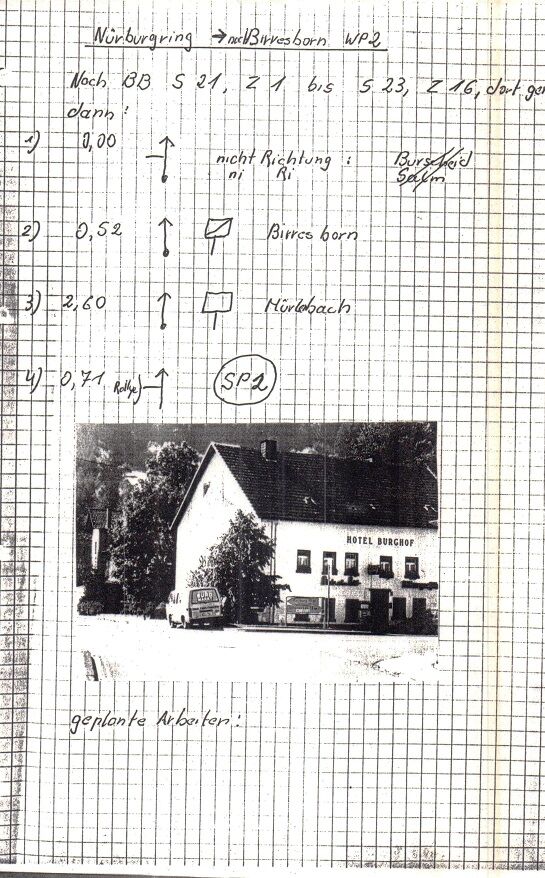 Nürburgring → nach Birresborn WP2
Nach BB S 21, Z 1 bis S 23, Z 16, dort
dann:
1) 0,00 nicht Richtung: Burscheid
ni Ri Salm
2) 0,52 Birresborn
3) 2,60 Mürlebach
4) 0,71 SP2
HOTEL BURGHOF
geplante Arbeiten: